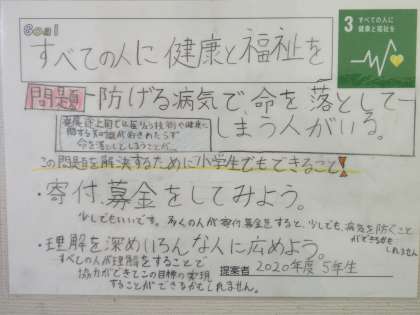 Goal
すべての人に健康と福祉を
3 すべての人に
健康と福祉を
問題 防げる病気で命を落として
しまう人がいる。
発展途上国では
命を落としてしまうことが
この問題を解決するために小学生でもできること!
・寄付、募金をしてみよう。
少しでもいいです。多くの人が寄付、募金をすると、少しでも、病気を防ぐこと
ができるかも
しれません
・理解を深めいろんな人に広めよう。
すべての人が理解をすることで
協力ができてこの目標の実現
することができるかもしれません。
提案者 2020年度 5年生